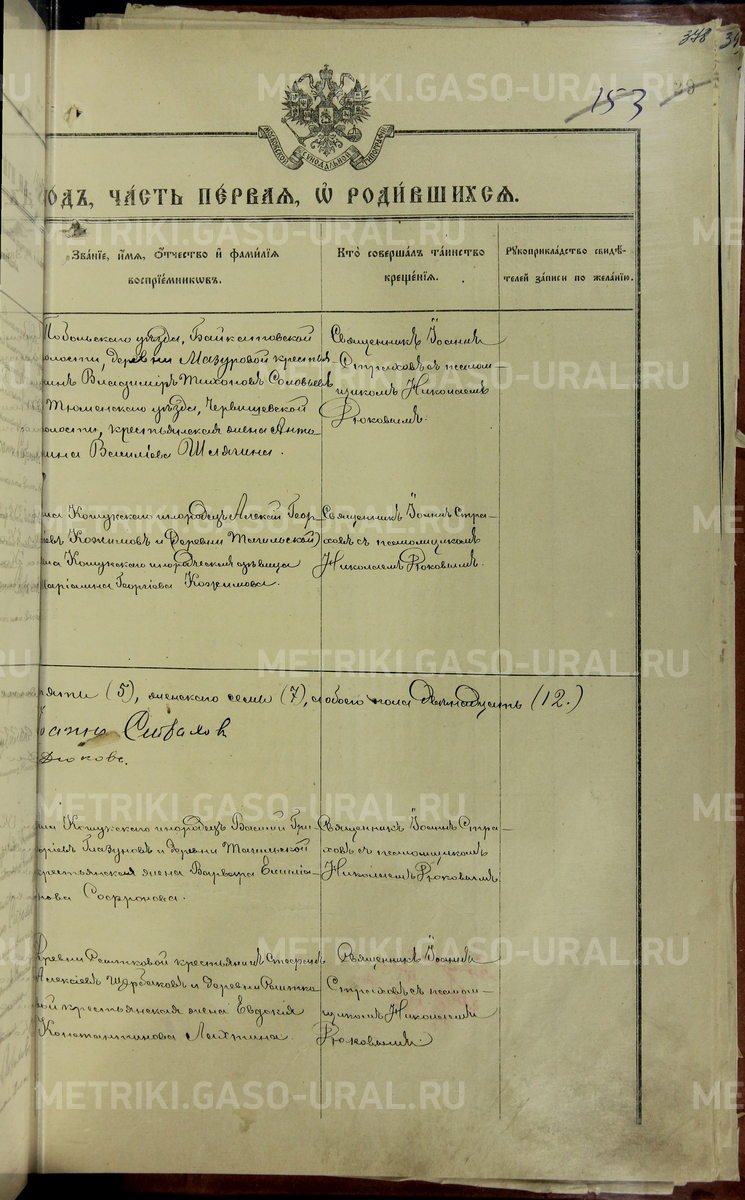 378
153
МОСКОВСКОЙ СУНОДАЛЬНОЙ ТИПОГРАФІИ
ГОДЪ, ЧАСТЬ ПЕРВАЯ, Ѡ РОДИВШИХСЯ.
Званіе, имя, отчество и фамилія
воспріемниковъ.
Кто совершалъ таинство
крещенія.
Рукоприкладство свидѣ-
телей записи по желанію.
Тобольскаго уѣзда, Байкаловской
волости, деревни Мазуровой крестья-
нинъ Владиміръ Тихоновъ Соловьевъ
Тюменскаго уѣзда, Червишевской
волости, крестьянская жена Анто-
нина Васильева Шлягина.
Священникъ Іоаннъ
Страховъ съ псалом-
щикомъ Николаемъ
Рюковымъ.
Кошукскаго инородецъ Алексѣй Геор-
евъ Кожимовъ и деревни Тагильской
Кошукскаго инородческая дѣвица
Маріанина Георгіева Кожимова.
Священникъ Іоаннъ Стра-
ховъ съ псаломщикомъ
Николаемъ Рюковымъ.
пяти (5), женскаго семи (7), а обоего пола двѣнадцать (12.)
Страхов
Рюковъ.
Кошукскаго инородецъ Василій Гри-
горіевъ Глазуновъ и деревни Тагильской
крестьянская жена Варвара Емилiа-
нова Софронова.
Священникъ Іоаннъ Стра-
ховъ съ псаломщикомъ
Николаемъ Рюковымъ.
деревни Решетковой крестьянинъ Стефанъ
Алексѣевъ Щербаковъ и деревни Решетко-
вой крестьянская жена Евдокія
Константинова Лахтина.
Священникъ Іоаннъ
Страховъ съ псалом-
щикомъ Николаемъ
Рюковымъ.
METRIKI.GASO-URAL.RU